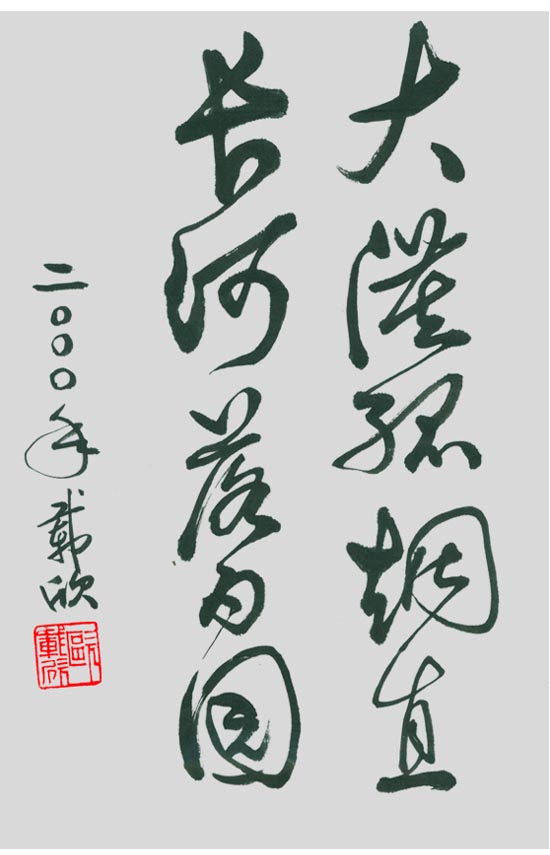 大漠孤烟直
长河落日圆
二〇〇〇年 载欣
欧载欣